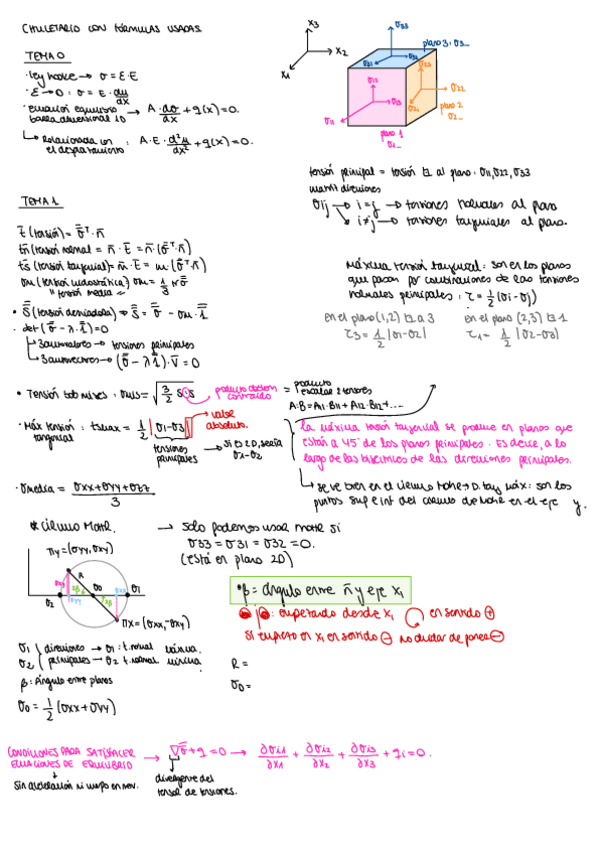 CHULETARIO CON FÓRMULAS USADAS
TEMA 0
· ley hooke → σ = E·E
· E → 0 : σ = E · du/dx
· Ecuación equilibrio barra dimensional 1D → A · dσ/dx + q(x) = 0.
↳ Relacionada con el desplazamiento : A·E · d²u/dx² + q(x) = 0.
X3
X2
X1
σ33
plano 3: σ3_
σ31
σ32
σ23
σ12
σ13
σ22
σ21
σ11
plano 2
σ2_
plano 1
σ1_
tensión principal = tensión ⊥ al plano : σ11, σ22, σ33
σij → i = j → tensiones normales al plano
↘ i ≠ j → tensiones tangenciales al plano.
TEMA 1
t̄ (tensión) = σ̿ᵀ · n̄
tn (tensión normal = n̄ · t̄ = n̄ · (σ̿ᵀ · n̄)
ts (tensión tangencial) = m̄ · t̄ = m · (σ̿ᵀ · n̄)
σm (tensión hidrostática) σm = 1/3 tr σ̿
"tensión media"
• S̿ (tensión desviadora) → S̿ = σ̿ - σm · 1̿
· det (σ̿ - λ · 1̿) = 0
↳ 3 autovalores → tensiones principales
↳ 3 autovectores → (σ̿ - λ1̿) · v̄ = 0
Máxima tensión tangencial : son en los planos
que pasan por combinaciones de las tensiones
normales principales : τ = 1/2 (σi - σj)
en el plano (1,2) ⊥ a 3
τ3 = 1/2 |σ1 - σ2|
en el plano (2,3) ⊥ 1
τ1 = 1/2 |σ2 - σ3|
• Tensión von mises : σvms = √(3/2 S : S)
producto doblem. contraído = producto escalar 2 tensores
A:B = A11·B11 + A12·B12 + ....
· Máx tensión tangencial : tsmax = 1/2 |σ1 - σ3|
→ valor absoluto.
tensiones principales
→ Si es 2D, sería σ1 - σ2
La máxima tensión tangencial se produce en planos que
están a 45º de los planos principales. Es decir, a lo
largo de las bisectrices de las direcciones principales.
↳ se ve bien en el círculo Mohr → D. tang máx : son los
puntos sup e inf del círculo de Mohr en el eje y.
· σmedia = (σxx + σyy + σzz) / 3
* CÍRCULO MOHR. → Solo podemos usar MOHR si
σ33 = σ31 = σ32 = 0.
(está en plano 2D)
πy = (σyy, σxy)
R
σ2
σyy
2β
σ0
σ1
πx = (σxx, -σxy)
*β = ángulo entre n̄ y eje x1
: empezando desde x1 en sentido ⊕
Si empiezo en x1 en sentido ⊖ no olvidar de poner ⊖
σ1 direcciones → σ1 : t. normal máxima.
σ2 principales → σ2 t. normal mínima.
β : Ángulo entre planos
σ0 = 1/2 (σxx + σyy)
R =
σ0 =
CONDICIONES PARA SATISFACER
ECUACIONES DE EQUILIBRIO → ∇σ̿ + q = 0 → ∂σi1/∂x1 + ∂σi2/∂x2 + ∂σi3/∂x3 + qi = 0.
Sin aceleración ni cuerpo en mov.
divergente del
tensor de tensiones.